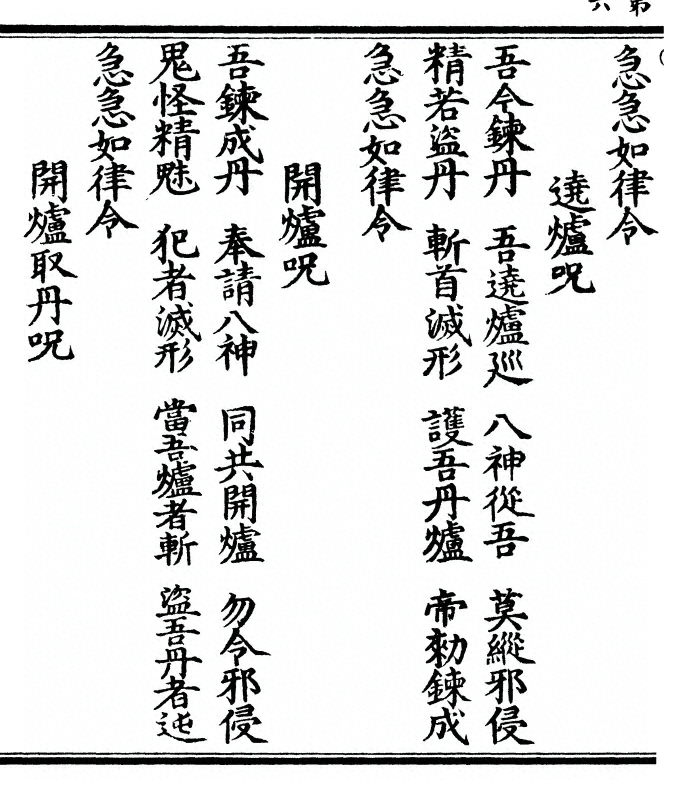 第六
急急如律令
遶爐呪
吾令鍊丹 吾遶爐巡 八神從吾 莫縱邪侵
精若盜丹 斬首滅形 護吾丹爐 帝勑鍊成
急急如律令
開爐呪
吾鍊成丹 奉請八神 同共開爐 勿令邪侵
鬼怪精魅 犯者滅形 當吾爐者斬 盜吾丹者迍
急急如律令
開爐取丹呪